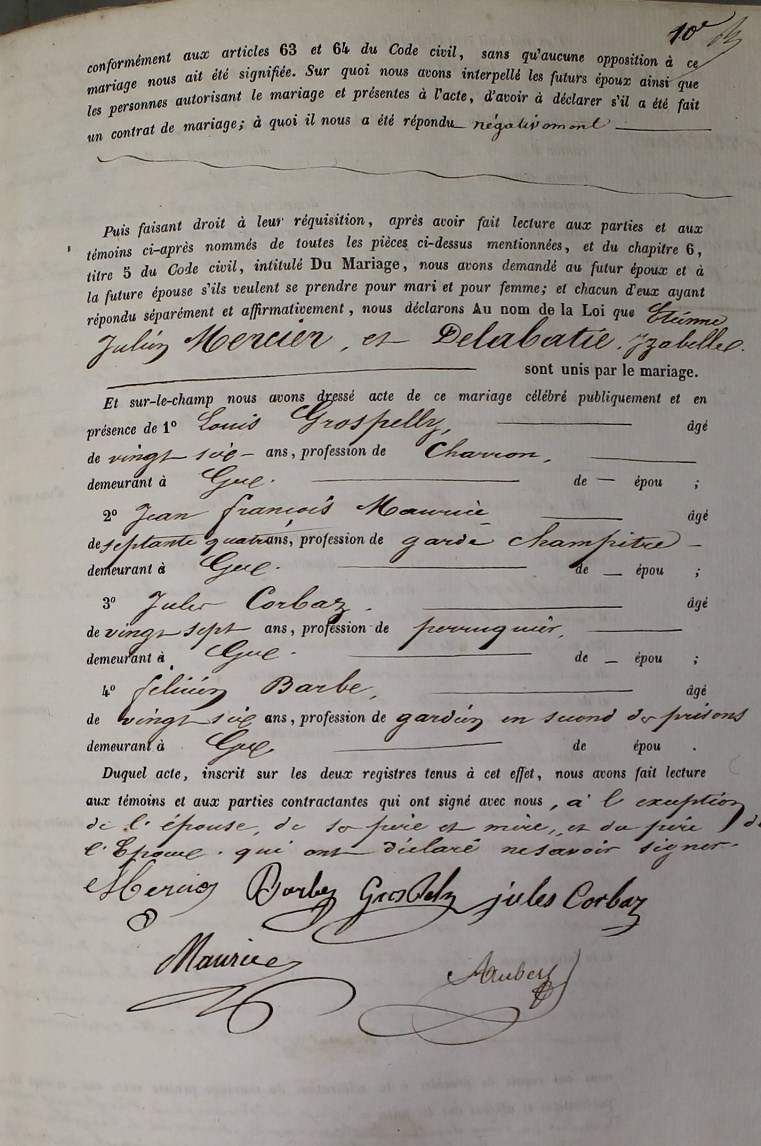 10e
conformément aux articles 63 et 64 du Code civil, sans qu'aucune opposition à ce
mariage nous ait été signifiée. Sur quoi nous avons interpellé les futurs époux ainsi que
les personnes autorisant le mariage et présentes à l'acte, d'avoir à déclarer s'il a été fait
un contrat de mariage; à quoi il nous a été répondu négativement
Puis faisant droit à leur réquisition, après avoir fait lecture aux parties et aux
témoins ci-après nommés de toutes les pièces ci-dessus mentionnées, et du chapitre 6,
titre 5 du Code civil, intitulé Du Mariage, nous avons demandé au futur époux et à
la future épouse s'ils veulent se prendre pour mari et pour femme; et chacun d'eux ayant
répondu séparément et affirmativement, nous déclarons Au nom de la Loi que Etienne
Julien Mercier, et Delabatie. Izabelle.
sont unis par le mariage.
Et sur-le-champ nous avons dressé acte de ce mariage célébré publiquement et en
présence de 1º Louis Grospelly, âgé
de vingt six ans, profession de Charron,
demeurant à Gex. de — épou ;
2º Jean françois Maurice âgé
de septante quatre ans, profession de garde champêtre
demeurant à Gex. de — épou ;
3º Jules Corbaz. âgé
de vingt sept ans, profession de perruquier,
demeurant à Gex. de — épou ;
4º félicien Barbe, âgé
de vingt six ans, profession de gardien en second des prisons
demeurant à Gex de épou .
Duquel acte, inscrit sur les deux registres tenus à cet effet, nous avons fait lecture
aux témoins et aux parties contractantes qui ont signé avec nous, à l'exception
de l'épouse, de ses père et mère, et du père de
l'Epoux. qui ont déclaré ne savoir signer.
Mercier Barbe Grospelly jules Corbaz
Maurice Aubert